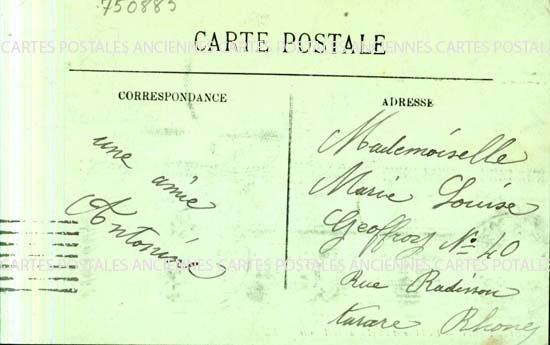 750885
CARTE POSTALE
CARTES POSTALES ANCIENNES CARTES POSTALES ANCIENNES CARTES POSTALES
CORRESPONDANCE
une amie
Antonine
ADRESSE
Mademoiselle
Marie Louise
Geoffroy No 40
Rue Radisson
tarare Rhone
CARTES POSTALES ANCIENNES CARTES POSTALES ANCIENNES CARTES POTALES